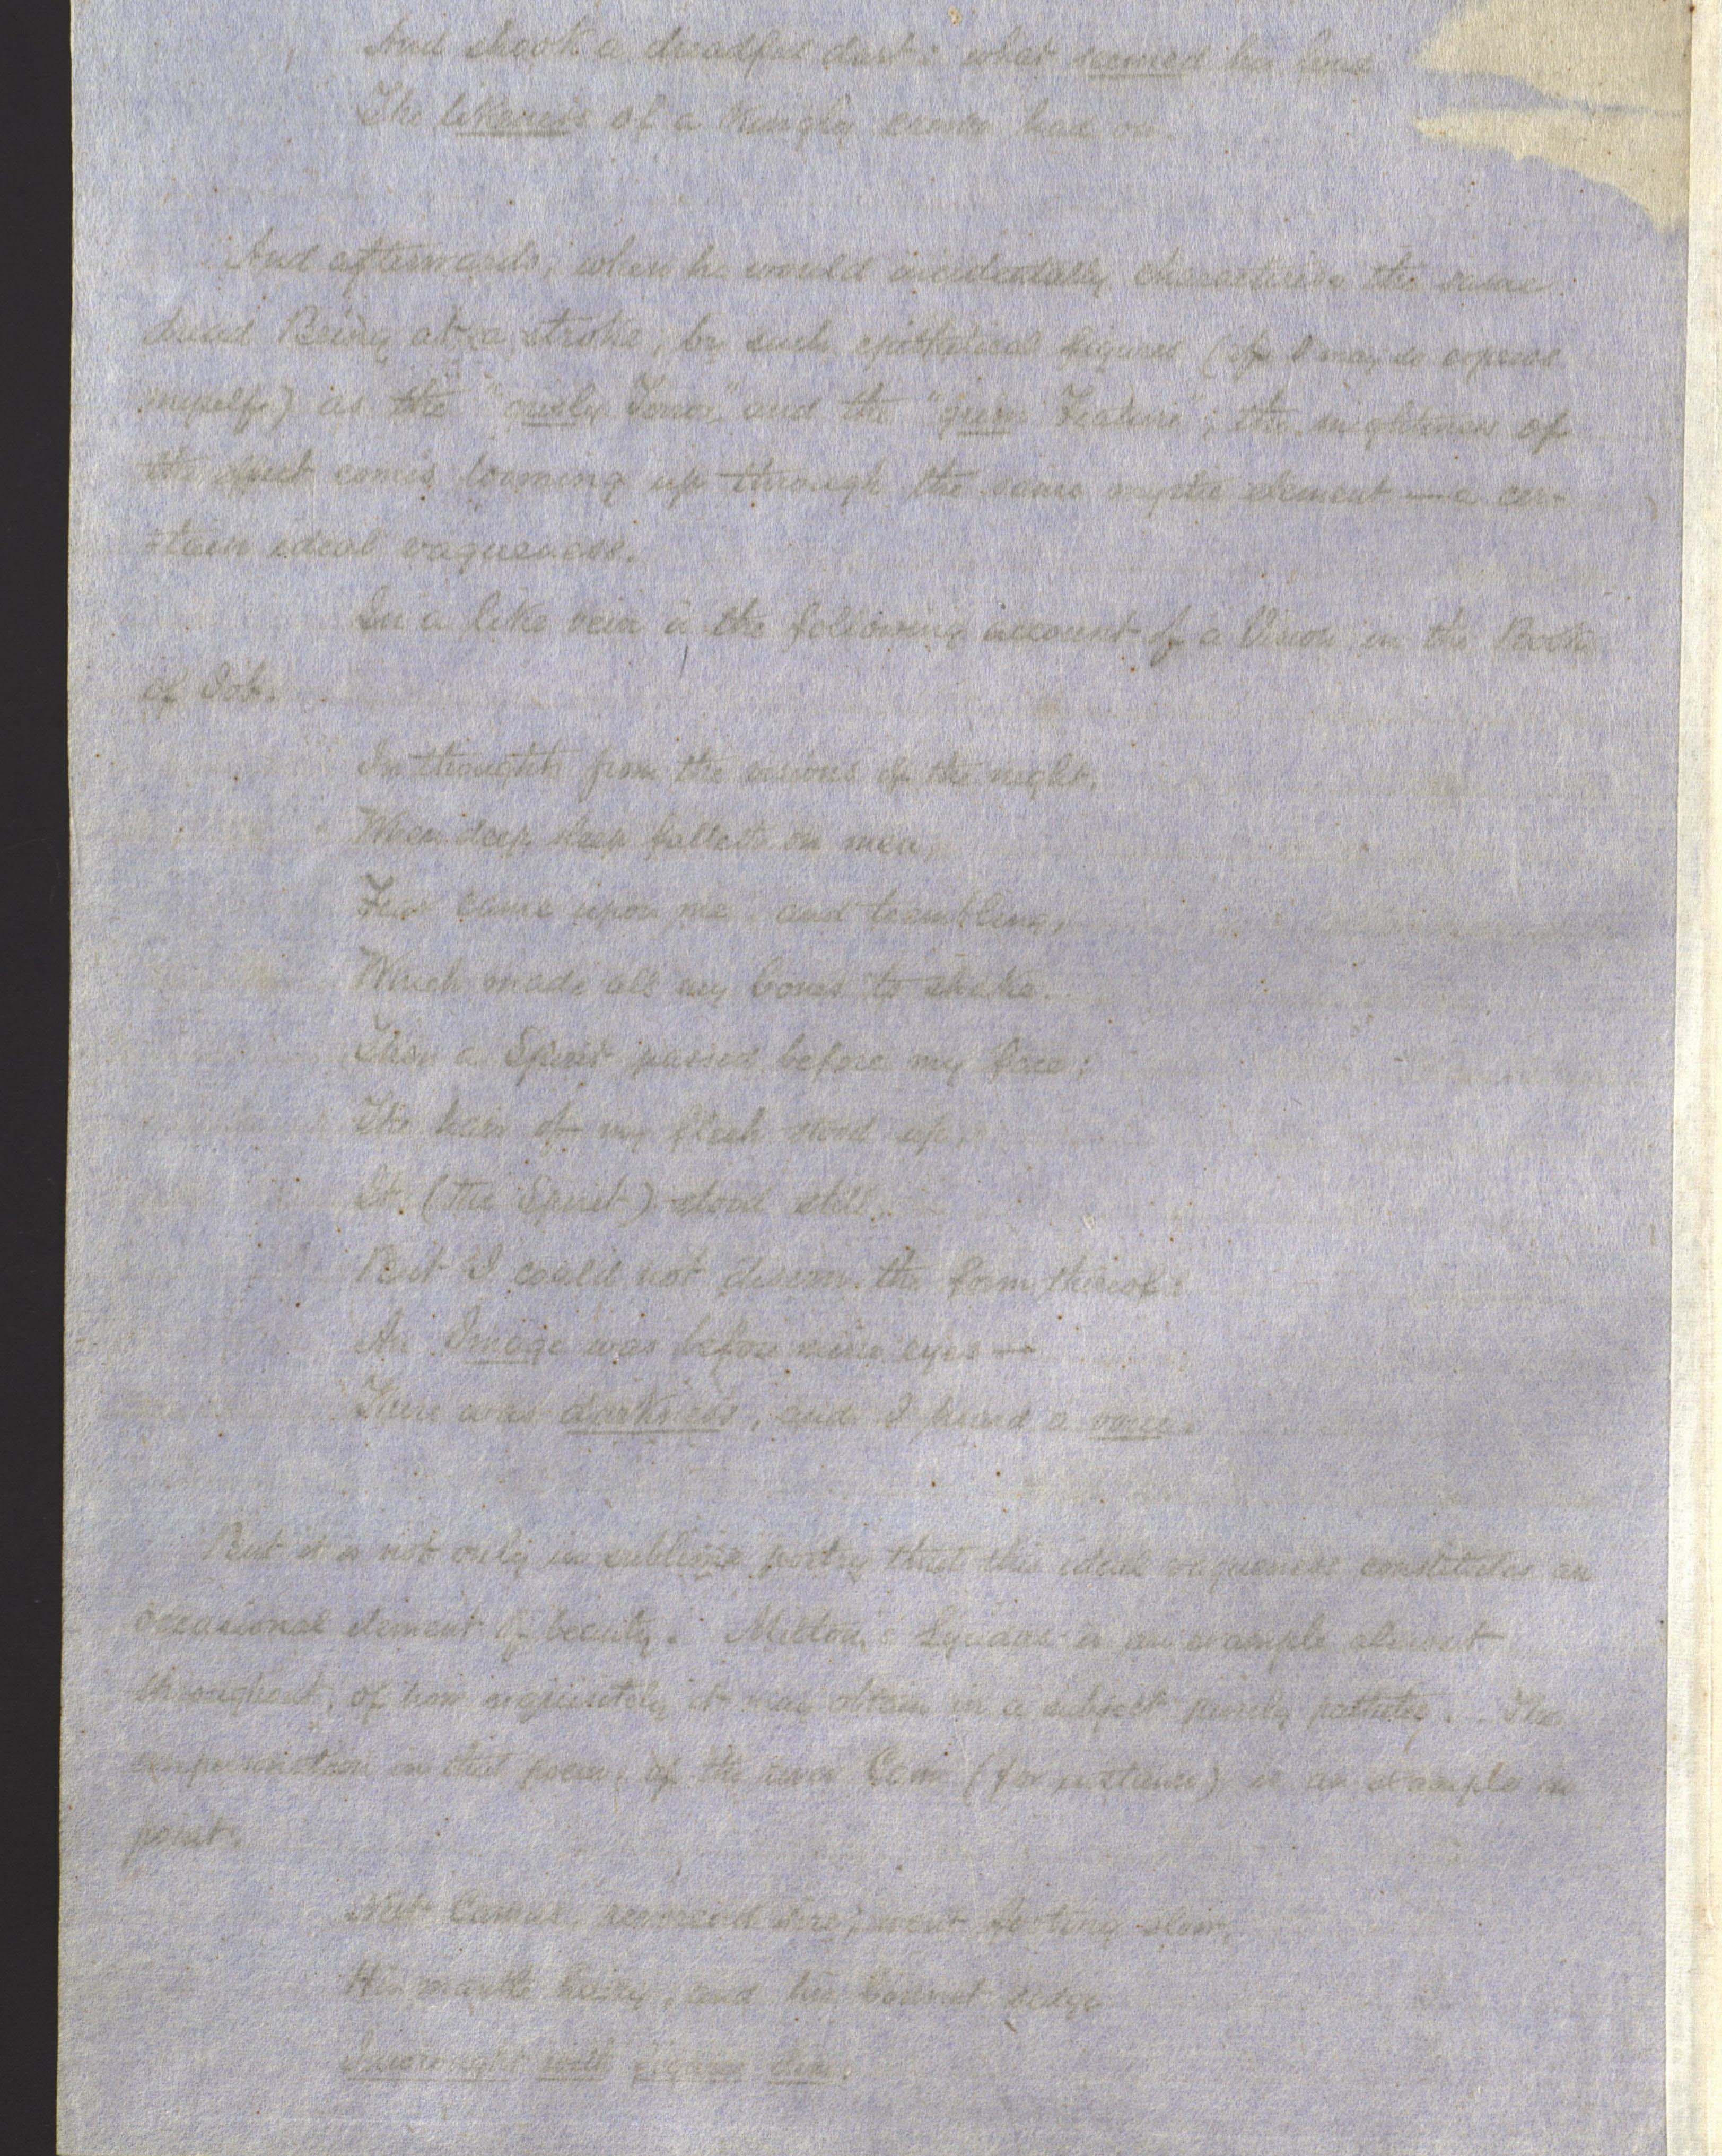 And shook a dreadful dart: what seemed his head
The likeness of a kingly crown had on.
And afterwards, when he would incidentally characterise the same
Being at a stroke, by such epithetical figures (if I may so express
myself) as the "grisly Terror" and the "grim Feature", the mightiness of
the effect comes looming up through the same mystic element — a cer-
-tain ideal vagueness.
In a like vein is the following account of a Vision in the Book
of Job.
In thoughts from the visions of the night,
When deep sleep falleth on men,
Fear came upon me, and trembling,
Which made all my bones to shake.
Then a Spirit passed before my face;
The hair of my flesh stood up.
It (the Spirit) stood still,
But I could not discern the form thereof:
An Image was before mine eyes —
There was darkness, and I heard a voice.
But it is not only in sublime poetry that this ideal vagueness constitutes an
occasional element of beauty. Milton's Lycidas is an example almost
throughout, of how exquisitely it may obtain in a subject purely pathetic. The
impersonation in that poem, of the river Cam (for instance) is an example in
point.
Next Camus, reverend sire, went footing slow,
His mantle hairy, and his bonnet sedge
Inwrought with figures dim.